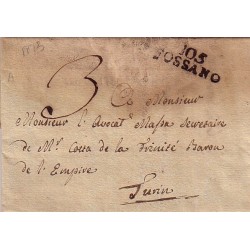 1813
105
FOSSANO
3
A Monsieur
Monsieur l'Avocat Massa Secretaire
de Mr. Costa de la Trinité Baron
de l'Empire
Turin